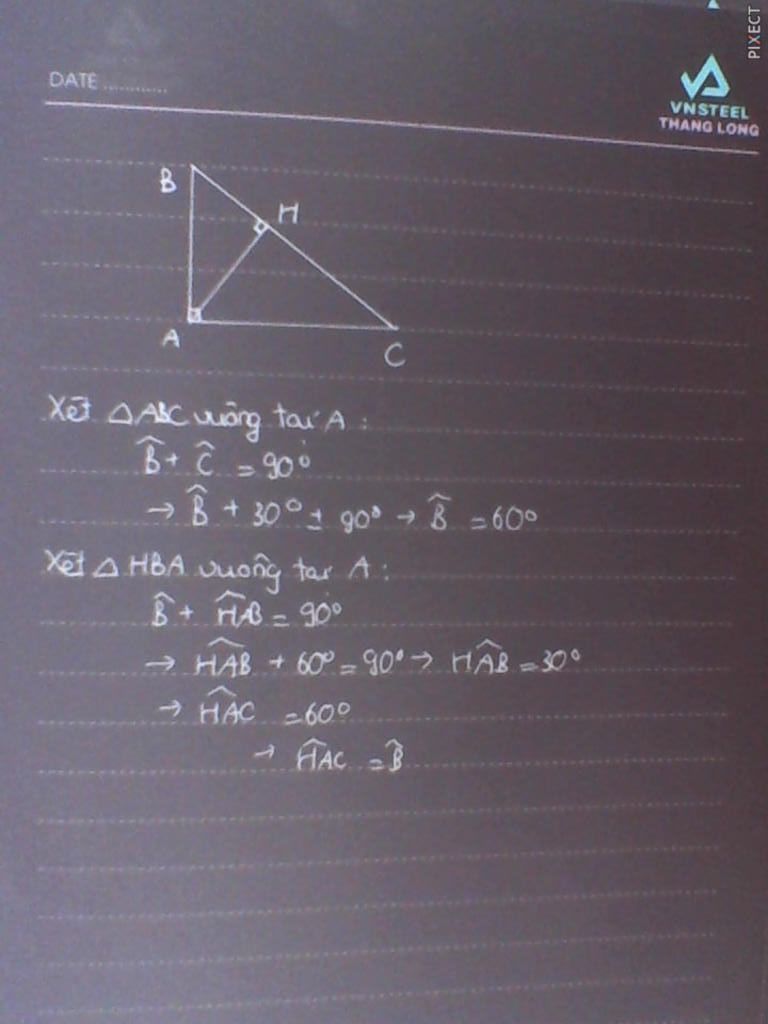 PIXECT
DATE ............
VNSTEEL
THANG LONG
B
H
A
C
Xét △ABC vuông tại A :
B̂ + Ĉ = 90°
→ B̂ + 30° = 90° → B̂ = 60°
Xét △ HBA vuông tại A :
B̂ + HÂB = 90°
→ HÂB + 60° = 90° → HÂB = 30°
→ HÂC = 60°
→ HÂC = B̂